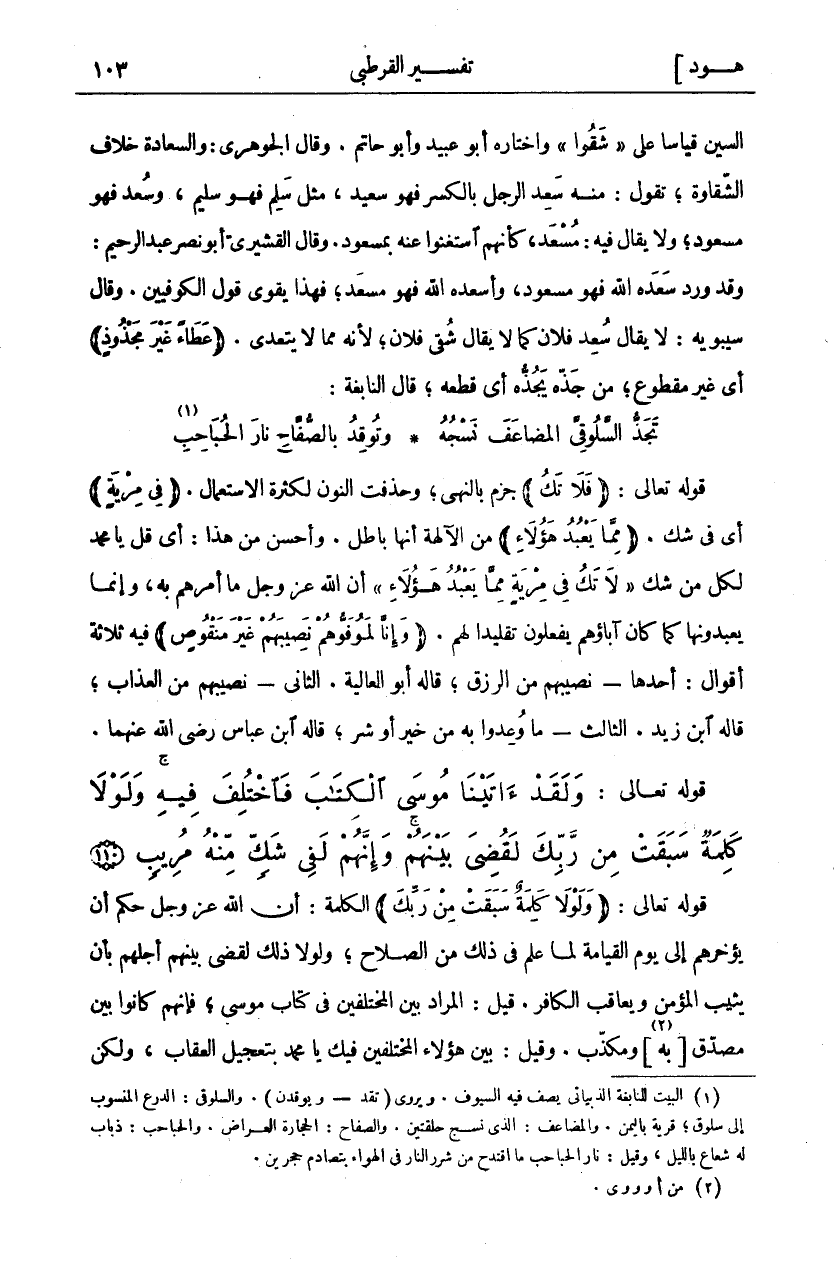 هــود ] تفســـير القرطبى ١٠٣
السين قياسا على « شَقُوا » واختاره أبو عبيد وأبو حاتم . وقال الجوهرى : والسعادة خلاف
الشّقاوة ؛ تقول : منــه سَعِد الرجل بالكسر فهو سعيد ، مثل سَلِم فهــو سليم ، وسُعد فهو
مسعود ؛ ولا يقال فيه : مُسْعَد ، كأنهم ٱستغنوا عنه بمسعود . وقال القشيرى أبو نصر عبد الرحيم :
وقد ورد سَعَده الله فهو مسعود ، وأسعده الله فهو مسعَد ؛ فهذا يقوى قول الكوفيين . وقال
سيبويه : لا يقال سُعِد فلان كما لا يقال شُقِى فلان ؛ لأنه مما لا يتعدى . ﴿ عَطَاءً غَيْرَ مَجْذُوذٍ ﴾
أى غير مقطوع ؛ من جَذّه يَجُذُّه أى قطعه ؛ قال النابغة :
تَجَذُّ السَّلُوقِيَّ المضاعَف نَسْجُهُ * وتُوقِدُ بالصُّفَّاحِ نارَ الحُبَاحِبِ (١)
قوله تعالى : ﴿ فَلَا تَكُ ﴾ جزم بالنهى ؛ وحذفت النون لكثرة الاستعمال . ﴿ فِي مِرْيَةٍ ﴾
أى فى شك . ﴿ مِمَّا يَعْبُدُ هَؤُلَاءِ ﴾ من الآلهة أنها باطل . وأحسن من هذا : أى قل يا محمد
لكل من شك « لَا تَكُ فِي مِرْيَةٍ مِمَّا يَعْبُدُ هَــؤُلَاءِ » أن الله عز وجل ما أمرهم به ، وإنمــا
يعبدونها كما كان آباؤهم يفعلون تقليدا لهم . ﴿ وَإِنَّا لَمُوَفُّوهُمْ نَصِيبَهُمْ غَيْرَ مَنْقُوصٍ ﴾ فيه ثلاثة
أقوال : أحدها — نصيبهم من الرزق ؛ قاله أبو العالية . الثانى — نصيبهم من العذاب ؛
قاله ٱبن زيد . الثالث — ما وُعِدوا به من خير أو شر ؛ قاله ٱبن عباس رضى الله عنهما .
قوله تعــالى : وَلَقَدْ ءَاتَيْنَا مُوسَى ٱلْكِتَٰبَ فَٱخْتُلِفَ فِيهِ ۚ وَلَوْلَا
كَلِمَةٌ سَبَقَتْ مِن رَّبِّكَ لَقُضِىَ بَيْنَهُمْ ۚ وَإِنَّهُمْ لَفِى شَكٍّ مِّنْهُ مُرِيبٍ ١١٠
قوله تعالى : ﴿ وَلَوْلَا كَلِمَةٌ سَبَقَتْ مِنْ رَبِّكَ ﴾ الكلمة : أن الله عز وجل حكم أن
يؤخرهم إلى يوم القيامة لمــا علم فى ذلك من الصــلاح ؛ ولولا ذلك لقضى بينهم أجلهم بأن
يثيب المؤمن ويعاقب الكافر . قيل : المراد بين المختلفين فى كتاب موسى ؛ فإنهم كانوا بين
مصدّق [ به ] (٢) ومكذّب . وقيل : بين هؤلاء المختلفين فيك يا محمد بتعجيل العقاب ، ولكن
(١) البيت للنابغة الذبيانى يصف فيه السيوف . ويروى ( تقد — ويوقدن ) . والسلوق : الدرع المنسوب
إلى سلوق ؛ قرية باليمن . والمضاعف : الذى نسج حلقتين . والصفاح : الحجارة العراض . والحباحب : ذباب
له شعاع بالليل ، وقيل : نار الحباحب ما اقتدح من شرر النار فى الهواء بتصادم حجرين .
(٢) من أ و و و ى .